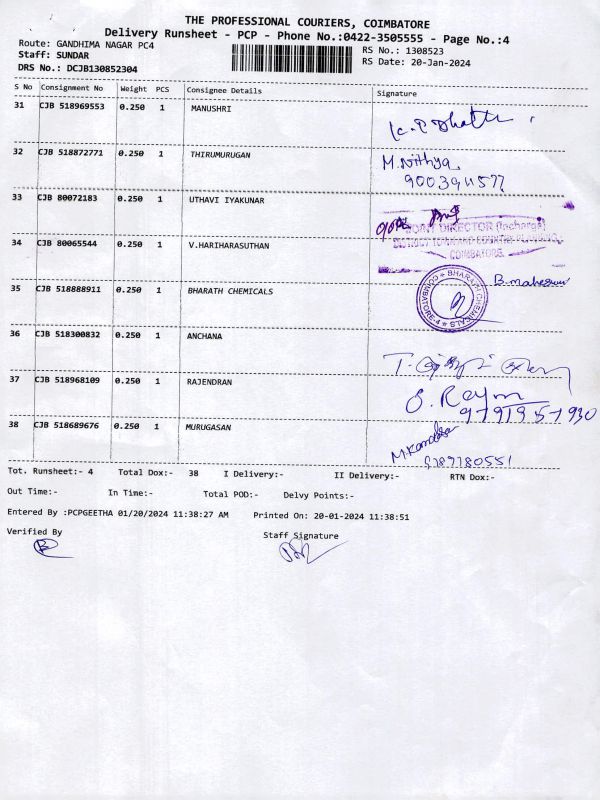 THE PROFESSIONAL COURIERS, COIMBATORE
Delivery Runsheet - PCP - Phone No.:0422-3505555 - Page No.:4
Route: GANDHIMA NAGAR PC4
Staff: SUNDAR
DRS No.: DCJB130852304
RS No.: 1308523
RS Date: 20-Jan-2024
S No Consignment No Weight PCS Consignee Details Signature
31 CJB 518969553 0.250 1 MANUSHRI
32 CJB 518872771 0.250 1 THIRUMURUGAN M. Nithya
33 CJB 80072183 0.250 1 UTHAVI IYAKUNAR
JOINT DIRECTOR (Incharge)
DISTRICT TOWN AND COUNTRY PLANNING
COIMBATORE.
34 CJB 80065544 0.250 1 V.HARIHARASUTHAN
35 CJB 518888911 0.250 1 BHARATH CHEMICALS
BHARATH CHEMICALS ★ COIMBATORE-4 ★
36 CJB 518300832 0.250 1 ANCHANA
37 CJB 518968109 0.250 1 RAJENDRAN
38 CJB 518689676 0.250 1 MURUGASAN
9789780551
Tot. Runsheet:- 4 Total Dox:- 38 I Delivery:- II Delivery:- RTN Dox:-
Out Time:- In Time:- Total POD:- Delvy Points:-
Entered By :PCPGEETHA 01/20/2024 11:38:27 AM Printed On: 20-01-2024 11:38:51
Verified By Staff Signature